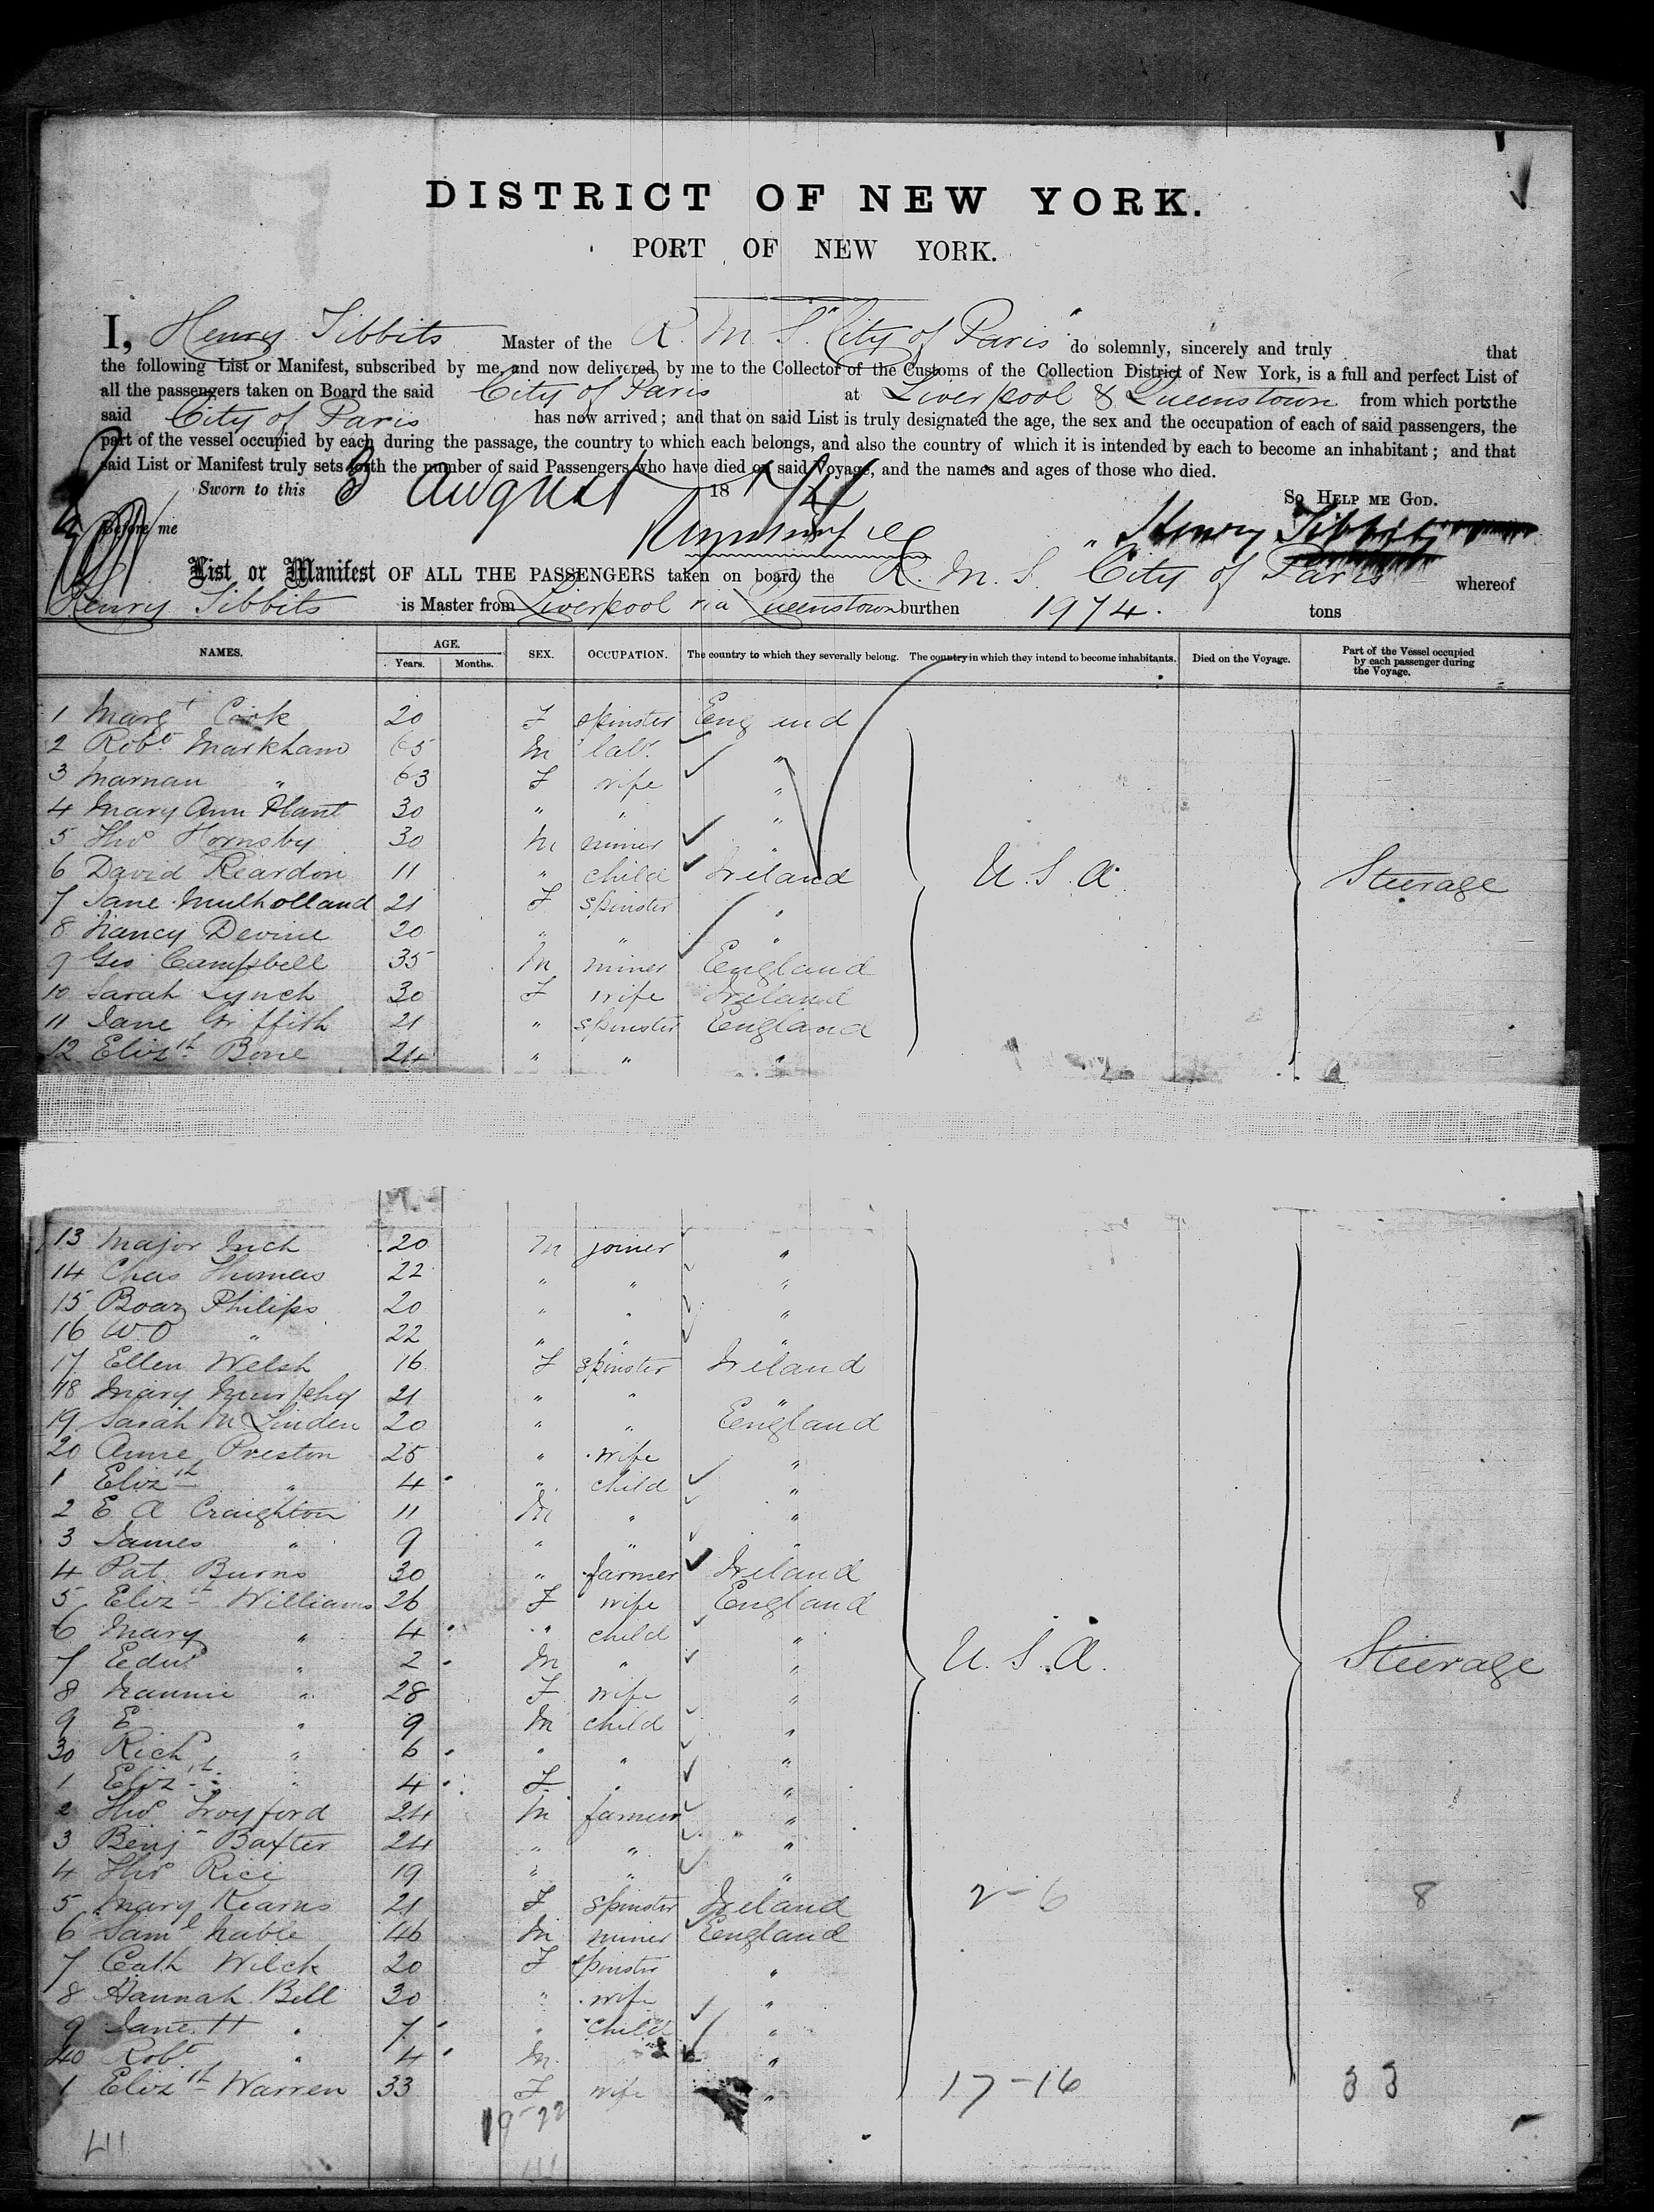 DISTRICT OF NEW YORK.
PORT OF NEW YORK.
I, Henry Tibbits Master of the R. M. S. "City of Paris" do solemnly, sincerely and truly that
the following List or Manifest, subscribed by me, and now delivered by me to the Collector of the Customs of the Collection District of New York, is a full and perfect List of
all the passengers taken on Board the said City of Paris at Liverpool & Queenstown from which ports the
said City of Paris has now arrived; and that on said List is truly designated the age, the sex and the occupation of each of said passengers, the
part of the vessel occupied by each during the passage, the country to which each belongs, and also the country of which it is intended by each to become an inhabitant; and that
said List or Manifest truly sets forth the number of said Passengers who have died on said Voyage, and the names and ages of those who died.
Sworn to this 3 August 18 So HELP ME GOD.
Before me Henry Tibbits
List or Manifest OF ALL THE PASSENGERS taken on board the R. M. S. City of Paris whereof
Henry Tibbits is Master from Liverpool via Queenstown burthen 1974. tons
NAMES. AGE. Years. Months. SEX. OCCUPATION. The country to which they severally belong. The country in which they intend to become inhabitants. Died on the Voyage. Part of the Vessel occupied by each passenger during the Voyage.
1 Margt Cook 20 F spinster England
2 Robt Markham 65 M labr "
3 " 63 F wife "
4 Mary Ann Plant 30 " " "
5 Thos Hornsby 30 M miner "
6 David Reardon 11 " child Ireland U.S.A. Steerage
7 Jane Mulholland 21 F spinster "
8 Nancy Devine 20 " " "
9 Geo Campbell 35 M miner England
10 Sarah Lynch 30 F wife Ireland
11 Jane Griffith 21 " spinster England
12 Elizth Bone 24 " " "
13 Major Inch 20 M joiner "
14 Chas Thomas 22 " " "
15 Boaz Philips 20 " " "
16 W O " 22 " " "
17 Ellen Welsh 16 F spinster Ireland
18 Mary Murphy 21 " " "
19 Sarah McLinden 20 " " England
20 Anne Preston 25 " wife "
1 Elizth " 4 " child "
2 E A Craighton 11 M " "
3 James " 9 " " "
4 Pat Burns 30 " farmer Ireland
5 Elizth Williams 26 F wife England
6 Mary " 4 " child "
7 Edwd " 2 M " " U.S.A. Steerage
8 Nannie " 28 F wife "
9 E " 9 M child "
30 Richd " 6 " " "
1 Elizth " 4 F " "
2 Thos Troyford 24 M farmer "
3 Benj Baxter 24 " " "
4 Thos Rice 19 " " "
5 Mary Kearns 21 F spinster Ireland 2-6 8
6 Saml Nable 46 M miner England
7 Cath Welch 20 F spinster "
8 Hannah Bell 30 " wife "
9 Jane H " 7 " child "
40 Robt " 4 M "
1 Elizth Warren 33 F wife " 17-16 33
19-22
41
41